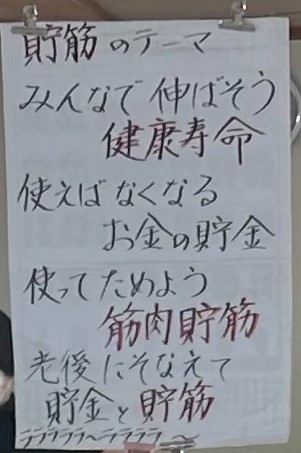 貯筋のテーマ
みんなで伸ばそう
健康寿命
使えばなくなる
お金の貯金
使ってためよう
筋肉貯筋
老後にそなえて
貯金と貯筋
ララララララ〜ララララ〜